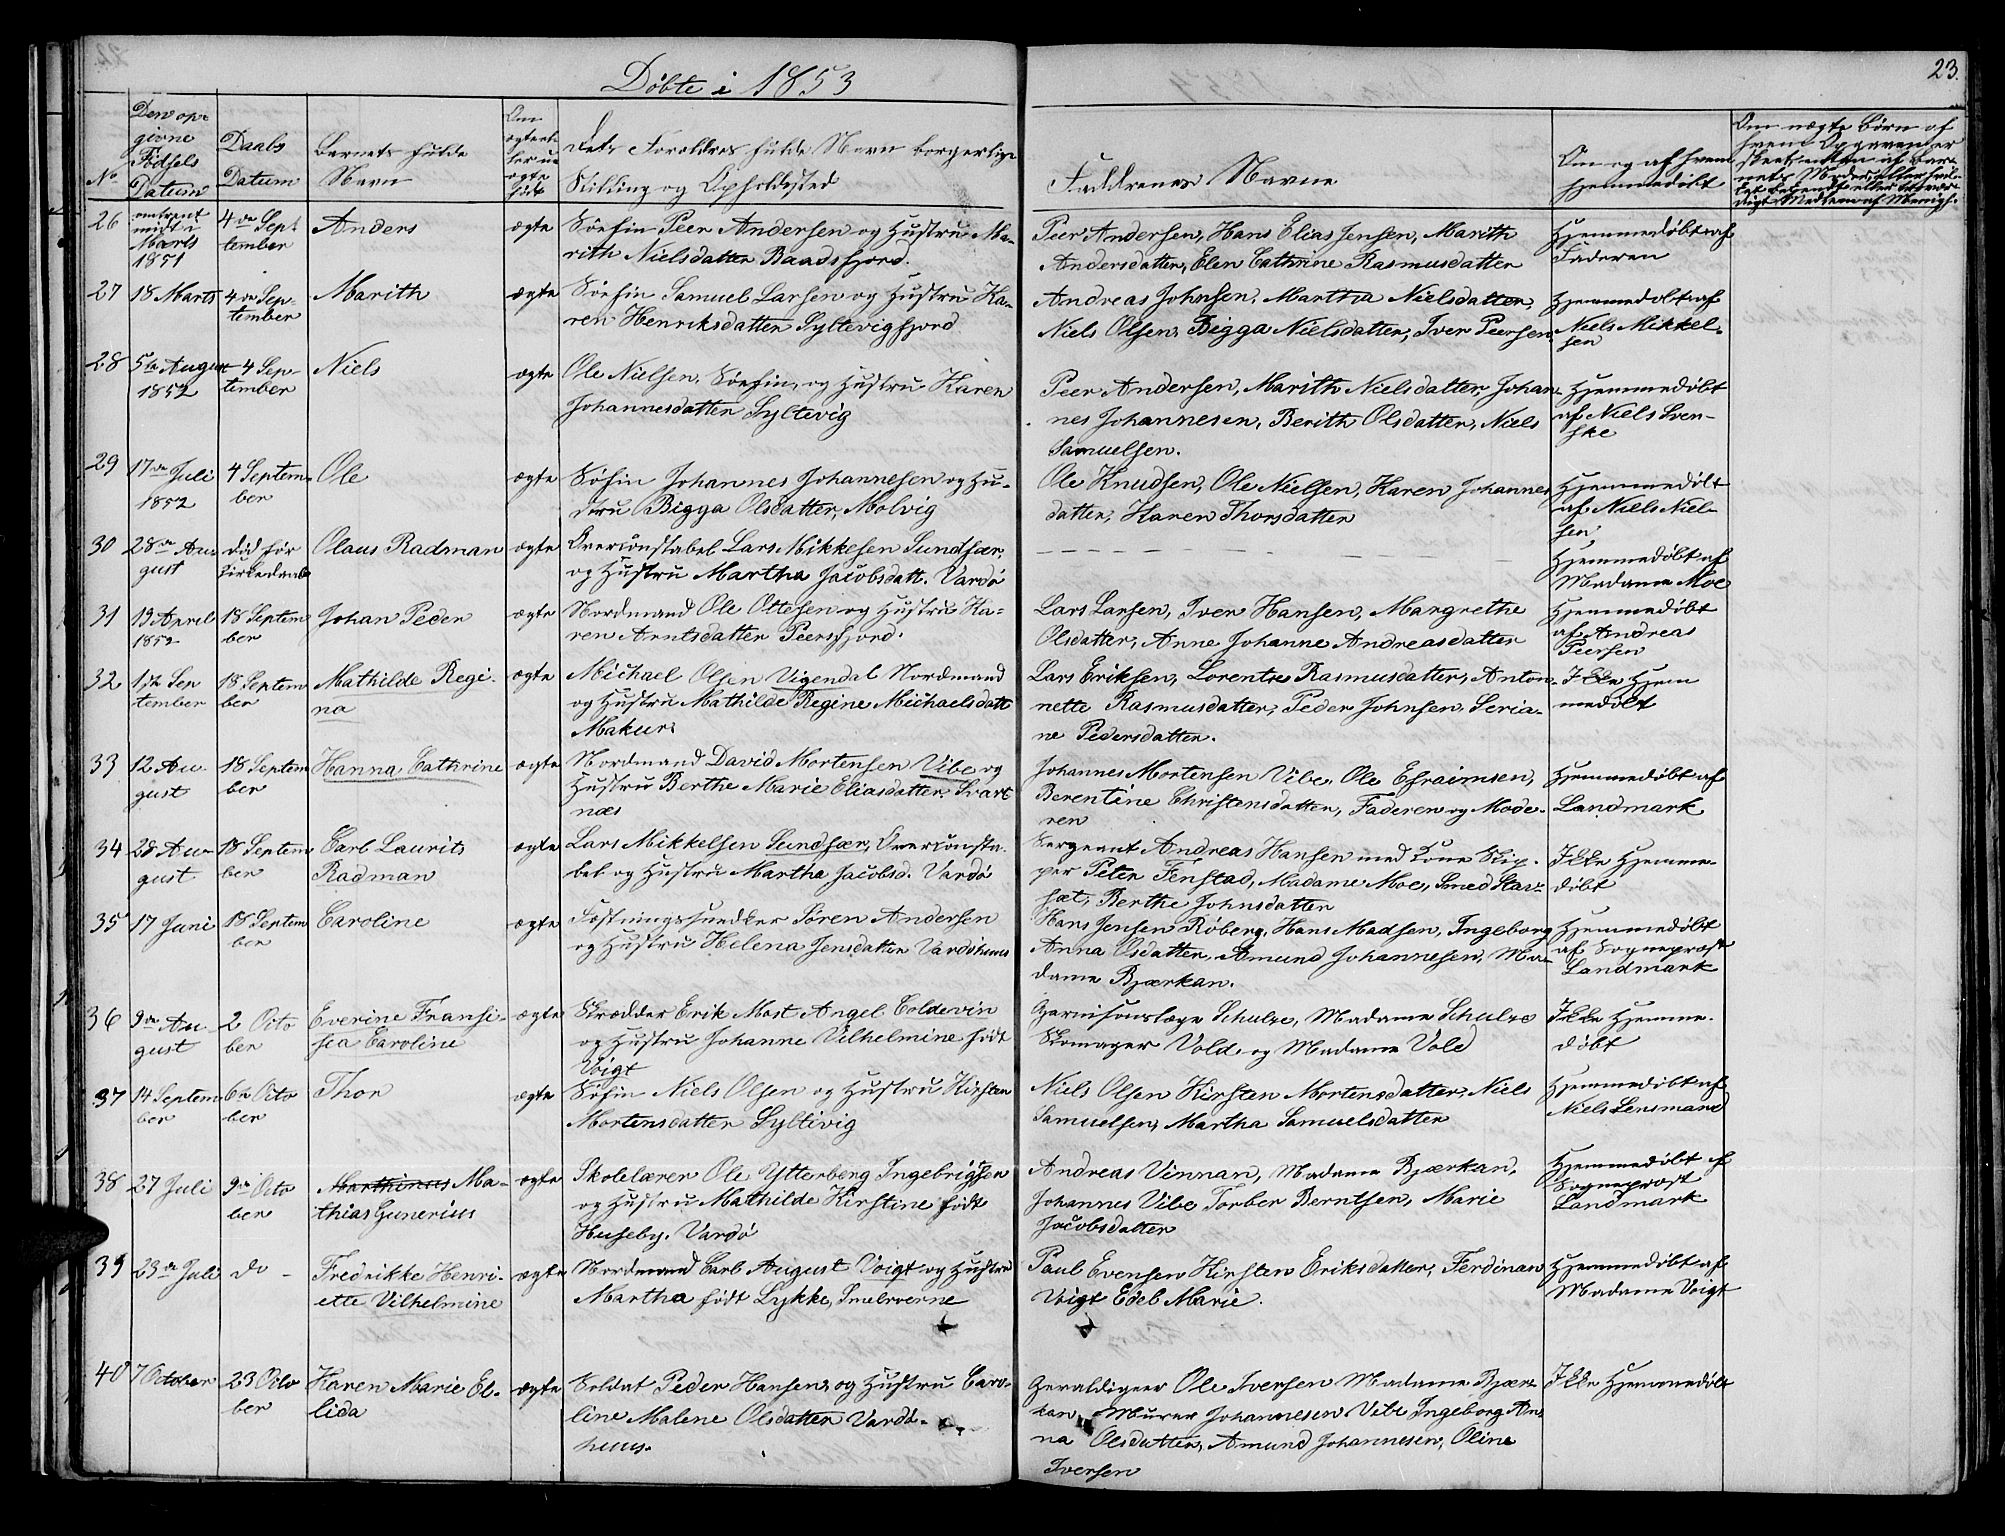 23.
Døbte i 1853
No
Den op-
givne
Fødsels
Datum
Daabs
Datum
Barnets fulde
Navn
Om
ægte el-
ler u-
ægte
født
Dets Forældres fulde Navn borgerlige
Stilling og Opholdssted
Faddrenes Navne
Om og af hvem
hjemmedøbt
Om uægte Børn af
hvem Opgaven er
26
omtrent
midt i
Marts
1851
4de Sept
tember
Anders
ægte
Søefin Peer Andersen og Hustru Ma-
rith Nielsdatter Baadsfjord.
Peer Andersen, Hans Elias Jensen, Marith
Andersdatter, Elen Cathrine Rasmusdatter
Hjemmedøbt af
Faderen
27
18 Marts
4de Sep-
tember
Marith
ægte
Søefin Samuel Larsen og Hustru Ka-
ren Henriksdatter Syltevigfjord
Andreas Johnsen, Martha Nielsdatter,
Niels Olsen, Bigga Nielsdatter, Iver Peersen
Hjemmedøbt af
Niels Mikkel-
sen
28
5te August
1852
4 Sep-
tember
Niels
ægte
Ole Nielsen, Søefin, og Hustru Karen
Johannesdatter Syltevig
Peer Andersen, Marith Nielsdatter, Johan-
nes Johannesen, Berith Olsdatter, Niels
Samuelsen.
Hjemmedøbt
af Niels Sven-
ske
29
17de Juli
1852
4 Septem-
ber
Ole
ægte
Søfin Johannes Johannesen og Hu-
stru Bigga Olsdatter, Molvig
Ole Knudsen, Ole Nielsen, Karen Johannes
datter, Karen Thorsdatter
Hjemmedøbt
af Niels Niel-
sen
30
28de Au
gust
død før
Kirkedaab
Olaus Radman
ægte
Overconstabel Lars Mikkesen Sundfær,
og Hustru Martha Jacobsdatt. Vardø
Hjemmedøbt af
Madame Moe
31
13 April
1852
18 Septem
ber
Johan Peder
ægte
Nordmand Ole Ottesen og Hustru Ka-
ren Arntsdatter Peersfjord.
Lars Larsen, Iver Hansen, Margrethe
Olsdatter, Anne Johanne Andreasdatter
Hjemmedøbt
af Andreas
Peersen
32
1ste Sep
tember
18 Septem
ber
Mathilde Regi-
na
ægte
Michael Olsen Vigendal Nordmand
og Hustru Mathilde Regine Michaelsdatt
Makur
Lars Eriksen, Lorentse Rasmusdatter, Anton-
nette Rasmusdatter, Peder Johnsen, Seria-
ne Pedersdatter.
Ikke Hjem
medøbt
33
12 Au-
gust
18 Septem
ber
Hanna Cathrine
ægte
Nordmand David Mortensen Vibe og
Hustru Berthe Marie Eliasdatter. Svart
næs
Johannes Mortensen Vibe, Ole Efraimsen,
Berentine Christensdatter, Faderen og Mode-
ren
Hjemmedøbt af
Landmark
34
28 Au-
gust
18 Septem
ber
Carl Laurits
Radman
ægte
Lars Mikkelsen Sundfær, Overconsta-
bel og Hustru Martha Jacobsd. Vardø
Sergeant Andreas Hansen med Kone Skip-
per Peter Fenstad, Madame Moe, Smed Star-
sæt, Berthe Johnsdatter
Ikke Hjemme-
døbt
35
17 Juni
18 Septem
ber
Caroline
ægte
Fæstningssnedker Søren Andersen
og Hustru Helena Jensdatter Vardøhuus
Hans Jensen Røberg, Hans Madsen, Ingeborg
Anna Olsdatter, Amund Johannesen, Ma-
dame Bjærkan.
Hjemmedøbt
af Sognepræst
Landmark
36
9de Au
gust
2 Octo
ber
Everine Fransi-
sca Caroline
ægte
Skrædder Erik Must Angel Coldevin
og Hustru Johanne Vilhelmine født
Voigt
Garnisonslæge Schulze, Madame Schulze
Skomager Vold og Madame Vold
Ikke Hjemme-
døbt
37
14 Septem
ber
6te Octo
ber
Thor
ægte
Søfin Niels Olsen og Hustru Kirsten
Mortensdatter Syltivig
Niels Olsen Kirsten Mortensdatter, Niels
Samuelsen, Martha Samuelsdatter
Hjemmedøbt af
Niels Lensmand
38
27 Juli
9de Octo
ber
Marthinus Ma-
thias Gunerius
ægte
Skolelærer Ole Ytterberg Ingebrigtsen
og Hustru Mathilde Kirstine født
Huseby. Vardø
Andreas Vinnan, Madame Bjærkan,
Johannes Vibe Torber Berntsen, Marie
Jacobsdatter
Hjemmedøbt af
Sognepræst
Landmark
39
23de Juli
do -
Fredrikke Henri-
ette Vilhelmine
ægte
Nordmand Carl August Voigt og Hustru
Martha født Lykke,
Paul Evensen Kirsten Eriksdatter, Ferdinan
Voigt Edel Marie.
Hjemmedøbt af
Madame Voigt
40
7 October
23 Octo
ber
Karen Marie El-
lida
ægte
Soldat Peder Hansen og Hustru Caro-
line Malene Olsdatter Vardø-
huus.
Ole Iversen Madame Bjær-
kan, Murer Johannesen Vibe Ingeborg An-
na Olsdatter, Amund Johannesen, Oline
Iversen
Ikke Hjemmedøbt